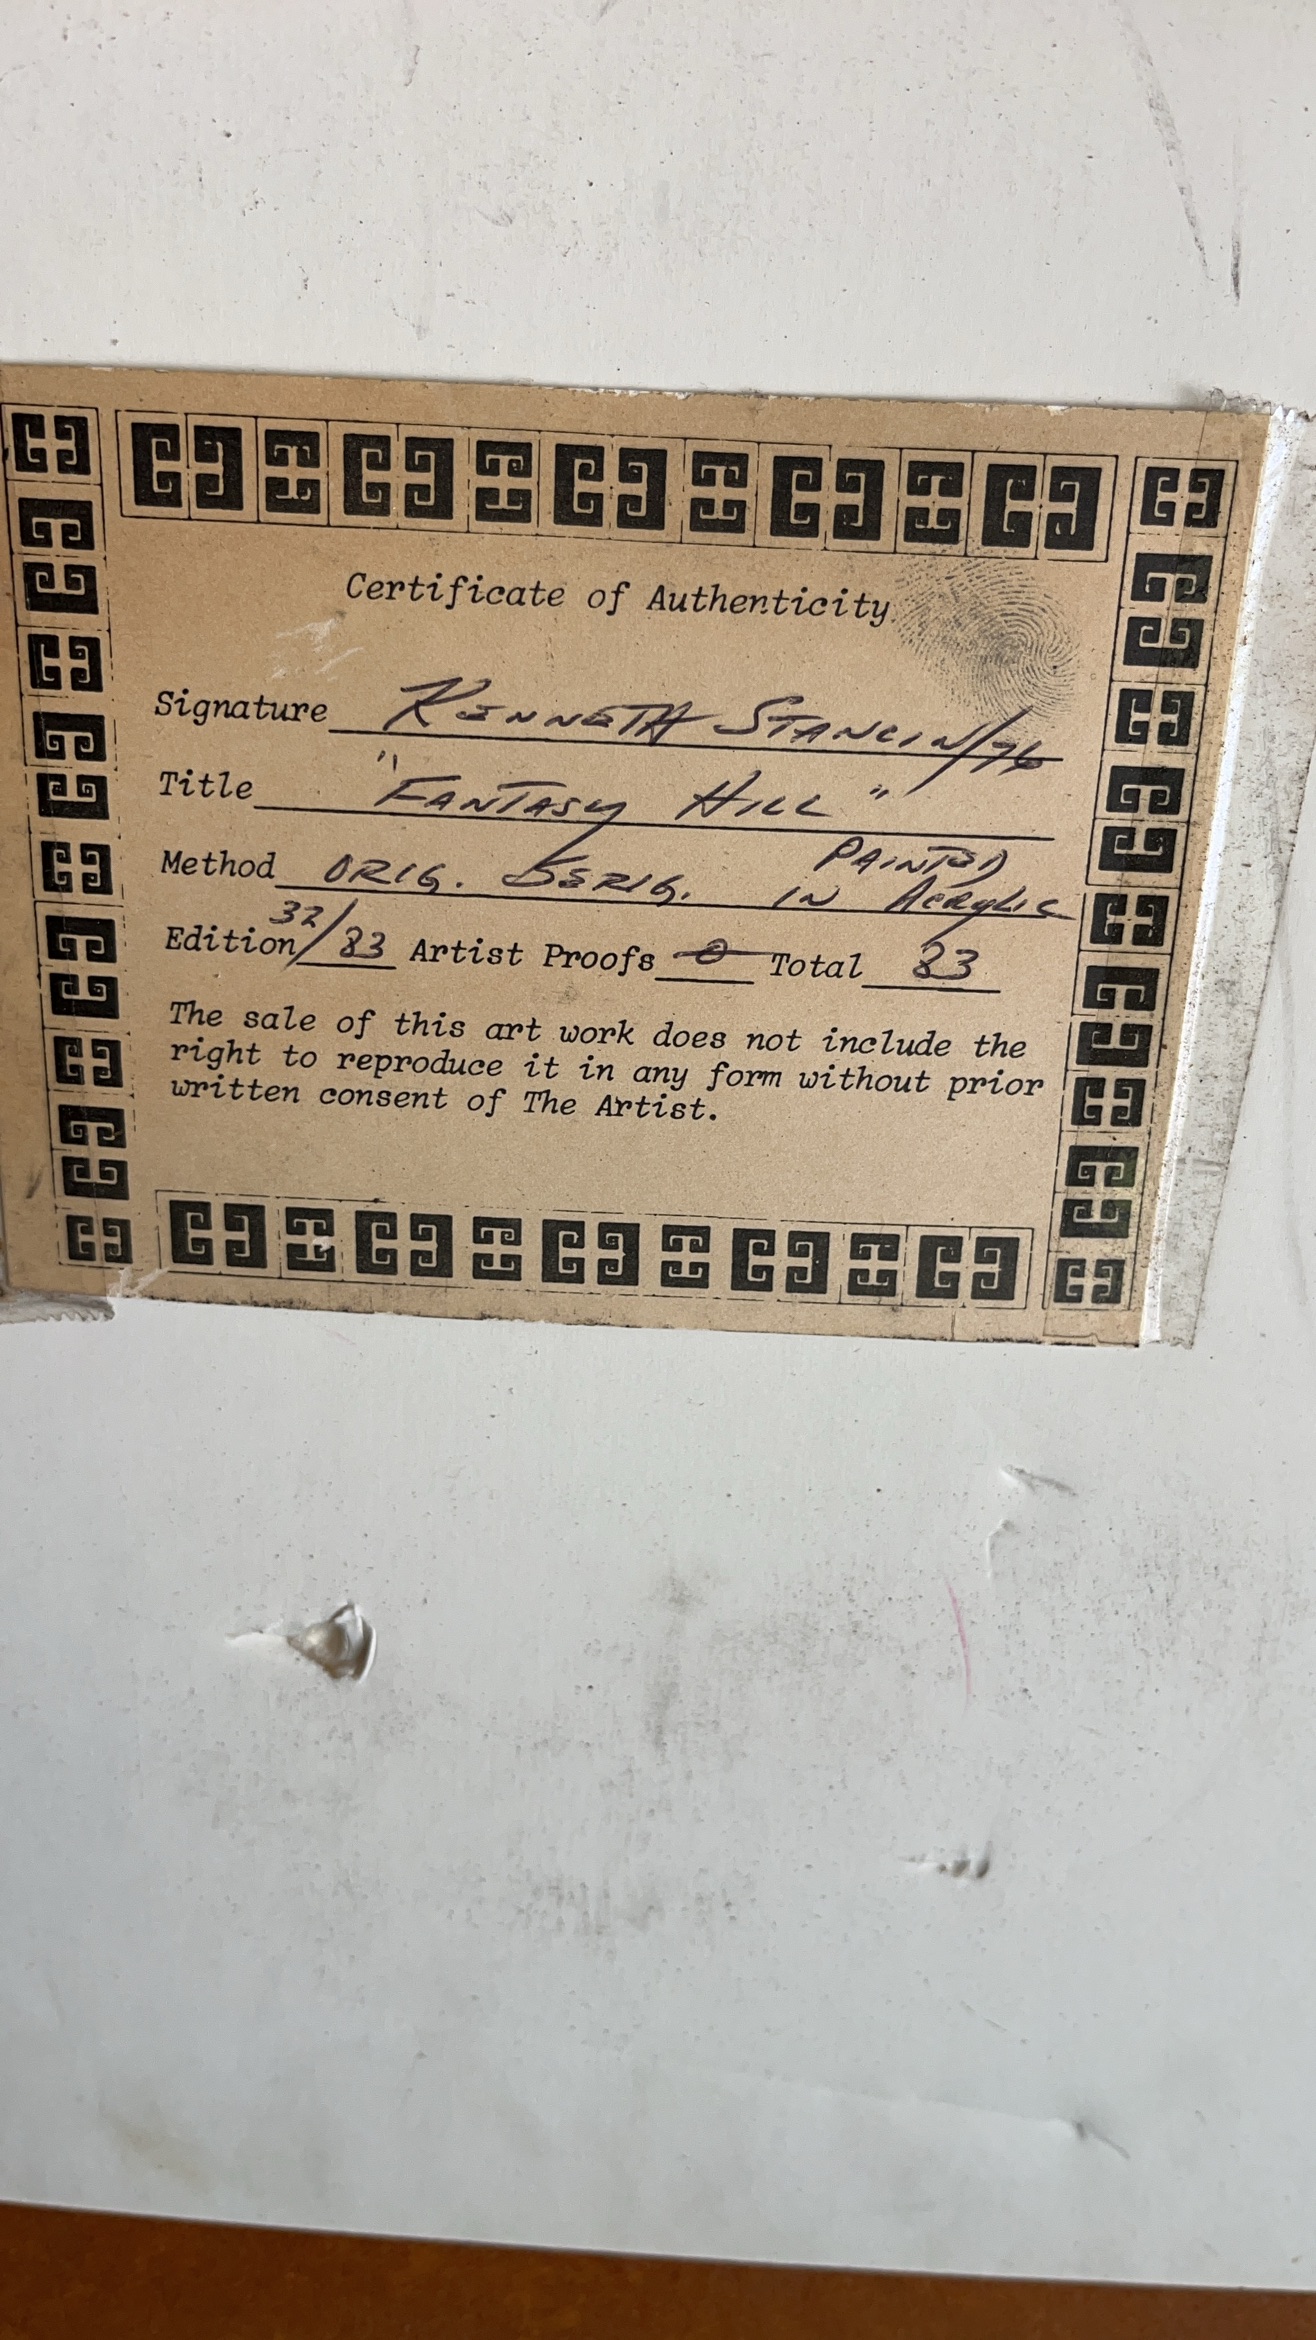 Certificate of Authenticity
Signature KENNETH STANCIN/76
Title "FANTASY HILL"
Method ORIG. SERIG. PAINTED IN ACRYLIC
Edition 32/83 Artist Proofs 0 Total 83
The sale of this art work does not include the
right to reproduce it in any form without prior
written consent of The Artist.